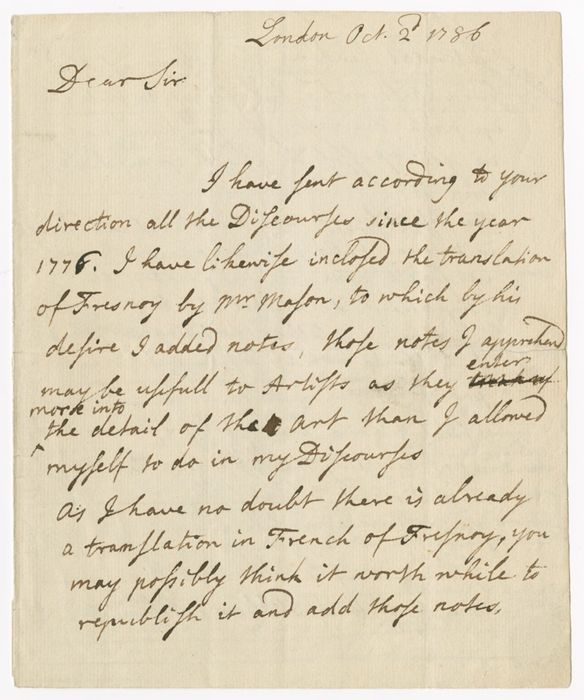 London Oct. 2d 1786
Dear Sir
I have sent according to your
direction all the Discourses since the year
1776. I have likewise inclosed the translation
of Fresnoy by Mr. Mason, to which by his
desire I added notes, those notes I apprehend
may be usefull to Artists as they enter
more into
the detail of the art than I allowed
myself to do in my Discourses
As I have no doubt there is already
a translation in French of Fresnoy, you
may possibly think it worth while to
republish it and add those notes,